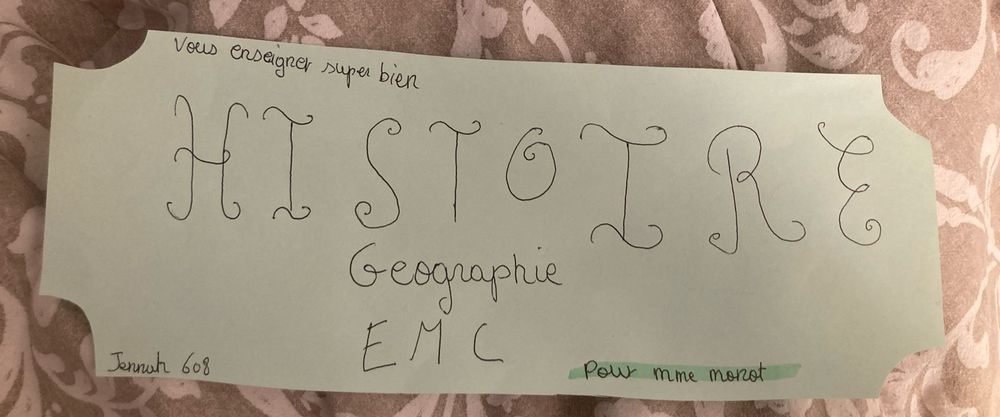 Vous enseigner super bien
HISTOIRE
Geographie
EMC
Jennah 608
Pour mme monot